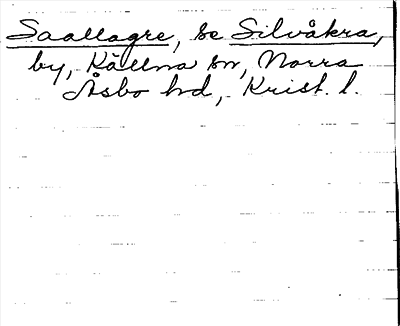 Saallagre, se Silvåkra,
by, Källna sn, Norra
Åsbo hd, Krist. l.